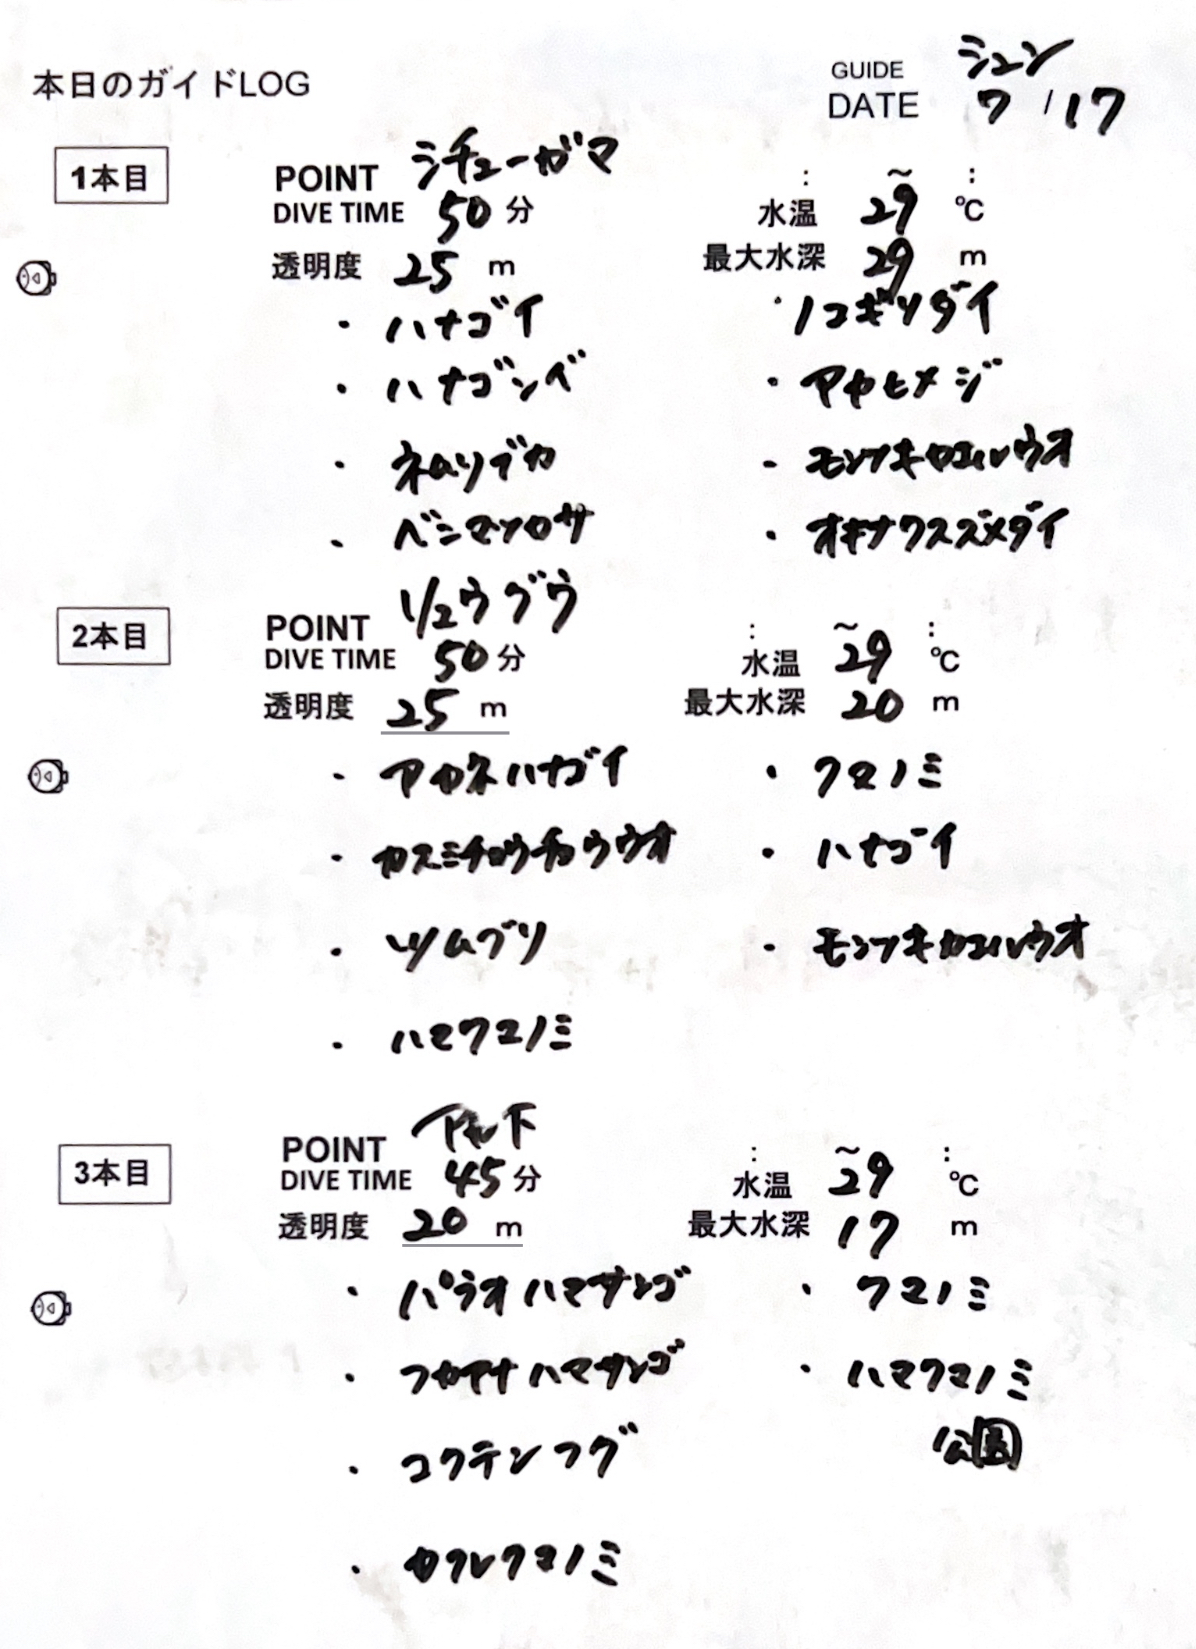 本日のガイドLOG
GUIDE シュン
DATE 7/17
1本目
POINT シチューガマ
: ～ :
DIVE TIME 50分
水温 29 ℃
透明度 25 m
最大水深 29 m
・ハナゴイ
・ノコギリダイ
・ハナゴンベ
・アカヒメジ
・ネムリブカ
・モンツキカエルウオ
・ベニマツカサ
・オキナワスズメダイ
2本目
POINT 1/2ウグウ
: ～ :
DIVE TIME 50分
水温 29 ℃
透明度 25 m
最大水深 20 m
・アカネハナゴイ
・クマノミ
・カスミチョウチョウウオ
・ハナゴイ
・ツムブリ
・モンツキカエルウオ
・ハマクマノミ
3本目
POINT 下
: ～ :
DIVE TIME 45分
水温 29 ℃
透明度 20 m
最大水深 17 m
・パラオハマサンゴ
・クマノミ
・フカアナハマサンゴ
・ハマクマノミ
公園
・コクテンフグ
・カクレクマノミ